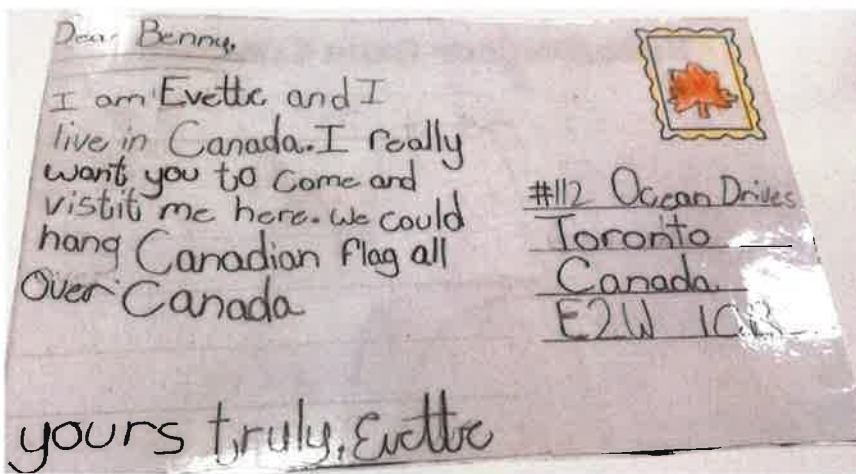 Dear Benny,
I am Evette and I
live in Canada. I really
want you to come and
vistit me here. We could
hang Canadian flag all
Over Canada
#112 Ocean Drives
Toronto
Canada
E2W
yours truly, Evette